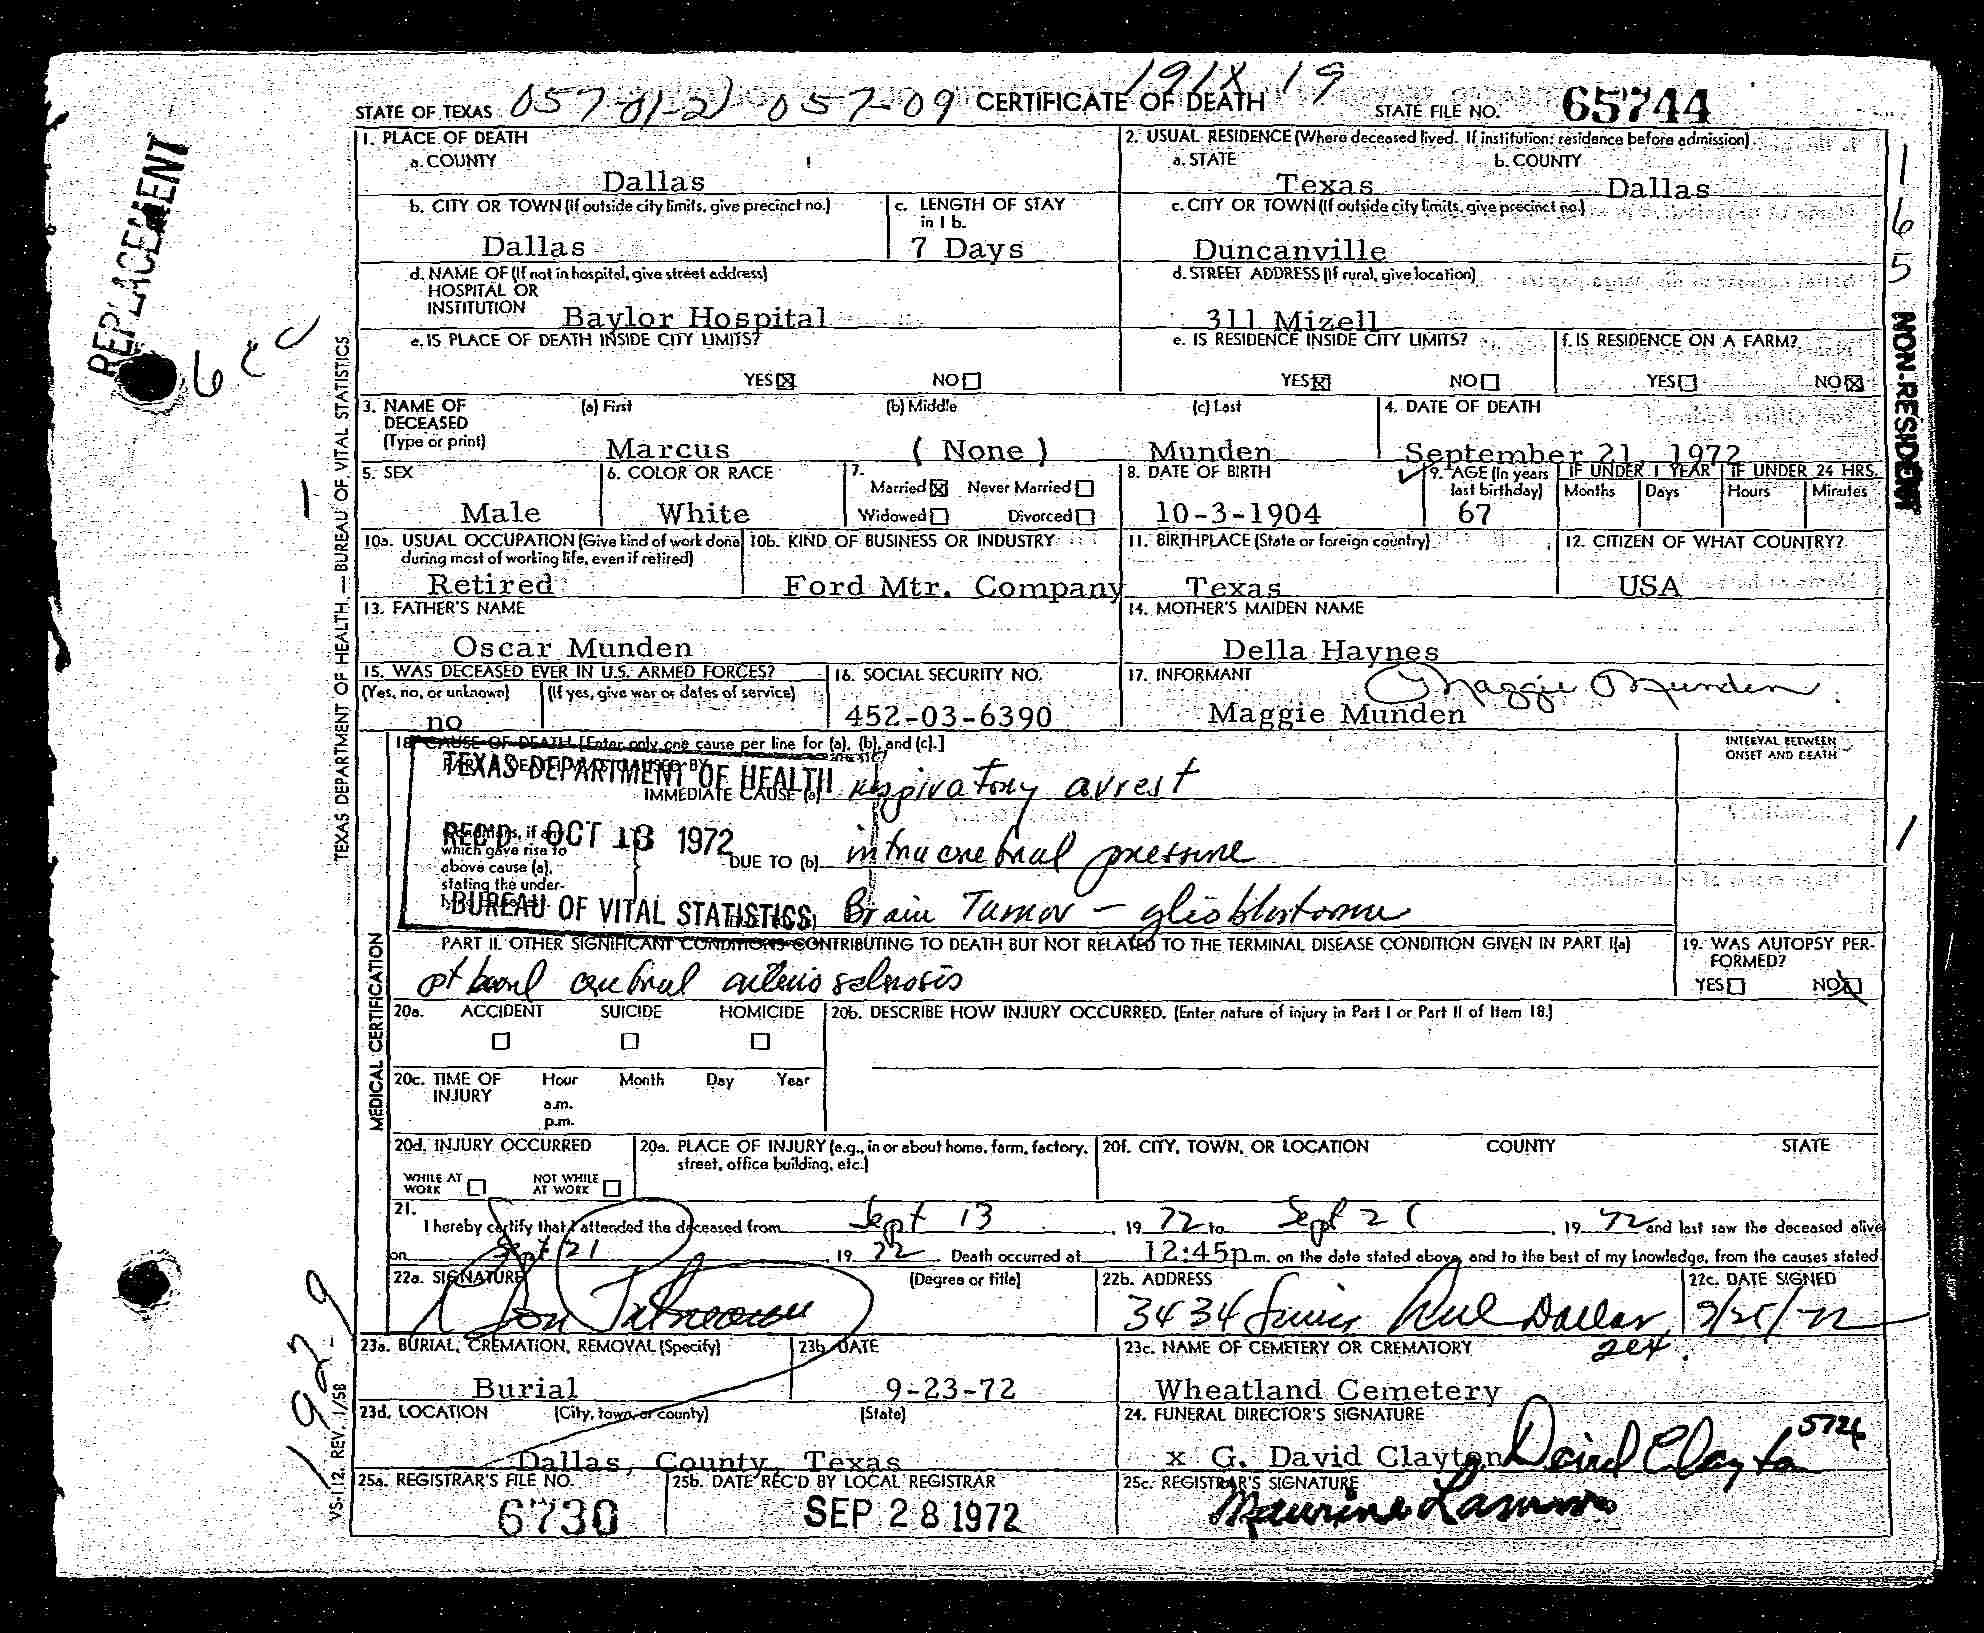 191X 19
STATE OF TEXAS 057-01-2) 057-09 CERTIFICATE OF DEATH STATE FILE NO. 65744
REPLACEMENT
1. PLACE OF DEATH
a. COUNTY
Dallas
2. USUAL RESIDENCE (Where deceased lived. If institution: residence before admission)
a. STATE b. COUNTY
Texas Dallas
b. CITY OR TOWN (If outside city limits, give precinct no.)
Dallas
c. LENGTH OF STAY
in 1 b.
7 Days
c. CITY OR TOWN (If outside city limits, give precinct no.)
Duncanville
d. NAME OF (If not in hospital, give street address)
HOSPITAL OR
INSTITUTION Baylor Hospital
d. STREET ADDRESS (If rural, give location)
311 Mizell
e. IS PLACE OF DEATH INSIDE CITY LIMITS?
YES☒ NO☐
e. IS RESIDENCE INSIDE CITY LIMITS?
YES☒ NO☐
f. IS RESIDENCE ON A FARM?
YES☐ NO☒
3. NAME OF
DECEASED
(Type or print)
(a) First (b) Middle (c) Last
Marcus ( None ) Munden
4. DATE OF DEATH
September 21, 1972
5. SEX
Male
6. COLOR OR RACE
White
7.
Married☒ Never Married☐
Widowed☐ Divorced☐
8. DATE OF BIRTH
10-3-1904
9. AGE (In years
last birthday)
67
IF UNDER 1 YEAR
Months Days
IF UNDER 24 HRS.
Hours Minutes
10a. USUAL OCCUPATION (Give kind of work done
during most of working life, even if retired)
Retired
10b. KIND OF BUSINESS OR INDUSTRY
Ford Mtr. Company
11. BIRTHPLACE (State or foreign country)
Texas
12. CITIZEN OF WHAT COUNTRY?
USA
13. FATHER'S NAME
Oscar Munden
14. MOTHER'S MAIDEN NAME
Della Haynes
15. WAS DECEASED EVER IN U.S. ARMED FORCES?
(Yes, no, or unknown) (If yes, give war or dates of service)
no
16. SOCIAL SECURITY NO.
452-03-6390
17. INFORMANT Maggie Munden
Maggie Munden
18. CAUSE OF DEATH [Enter only one cause per line for (a), (b), and (c).]
INTERVAL BETWEEN
ONSET AND DEATH
TEXAS DEPARTMENT OF HEALTH
IMMEDIATE CAUSE (a) respiratory arrest
REC'D OCT 13 1972
which gave rise to
above cause (a),
stating the under-
DUE TO (b) intracerebral pressure
BUREAU OF VITAL STATISTICS
Brain Tumor - glioblastoma
PART II. OTHER SIGNIFICANT CONDITIONS CONTRIBUTING TO DEATH BUT NOT RELATED TO THE TERMINAL DISEASE CONDITION GIVEN IN PART I(a)
cerebral arteriosclerosis
19. WAS AUTOPSY PER-
FORMED?
YES☐ NO☒
20a. ACCIDENT SUICIDE HOMICIDE
☐ ☐ ☐
20b. DESCRIBE HOW INJURY OCCURRED. (Enter nature of injury in Part I or Part II of Item 18.)
20c. TIME OF
INJURY
Hour Month Day Year
a.m.
p.m.
20d. INJURY OCCURRED
WHILE AT
WORK ☐
NOT WHILE
AT WORK ☐
20e. PLACE OF INJURY (e.g., in or about home, farm, factory,
street, office building, etc.)
20f. CITY, TOWN, OR LOCATION COUNTY STATE
21.
I hereby certify that I attended the deceased from Sept 13, 19 72 to Sept 21, 19 72 and last saw the deceased alive
on Sept 21, 19 72 Death occurred at 12:45p m. on the date stated above, and to the best of my knowledge, from the causes stated.
22a. SIGNATURE (Degree or title)
22b. ADDRESS
3434 Dallas
22c. DATE SIGNED
23a. BURIAL, CREMATION, REMOVAL (Specify)
Burial
23b. DATE
9-23-72
23c. NAME OF CEMETERY OR CREMATORY
Wheatland Cemetery
23d. LOCATION (City, town, or county) (State)
Dallas, County, Texas
24. FUNERAL DIRECTOR'S SIGNATURE
x G. David Clayton David Clayton 5726
25a. REGISTRAR'S FILE NO.
6730
25b. DATE REC'D BY LOCAL REGISTRAR
SEP 28 1972
25c. REGISTRAR'S SIGNATURE
TEXAS DEPARTMENT OF HEALTH — BUREAU OF VITAL STATISTICS
MEDICAL CERTIFICATION
VS-112. REV. 1/58
192-9
1
165
NON-RESIDENT
1